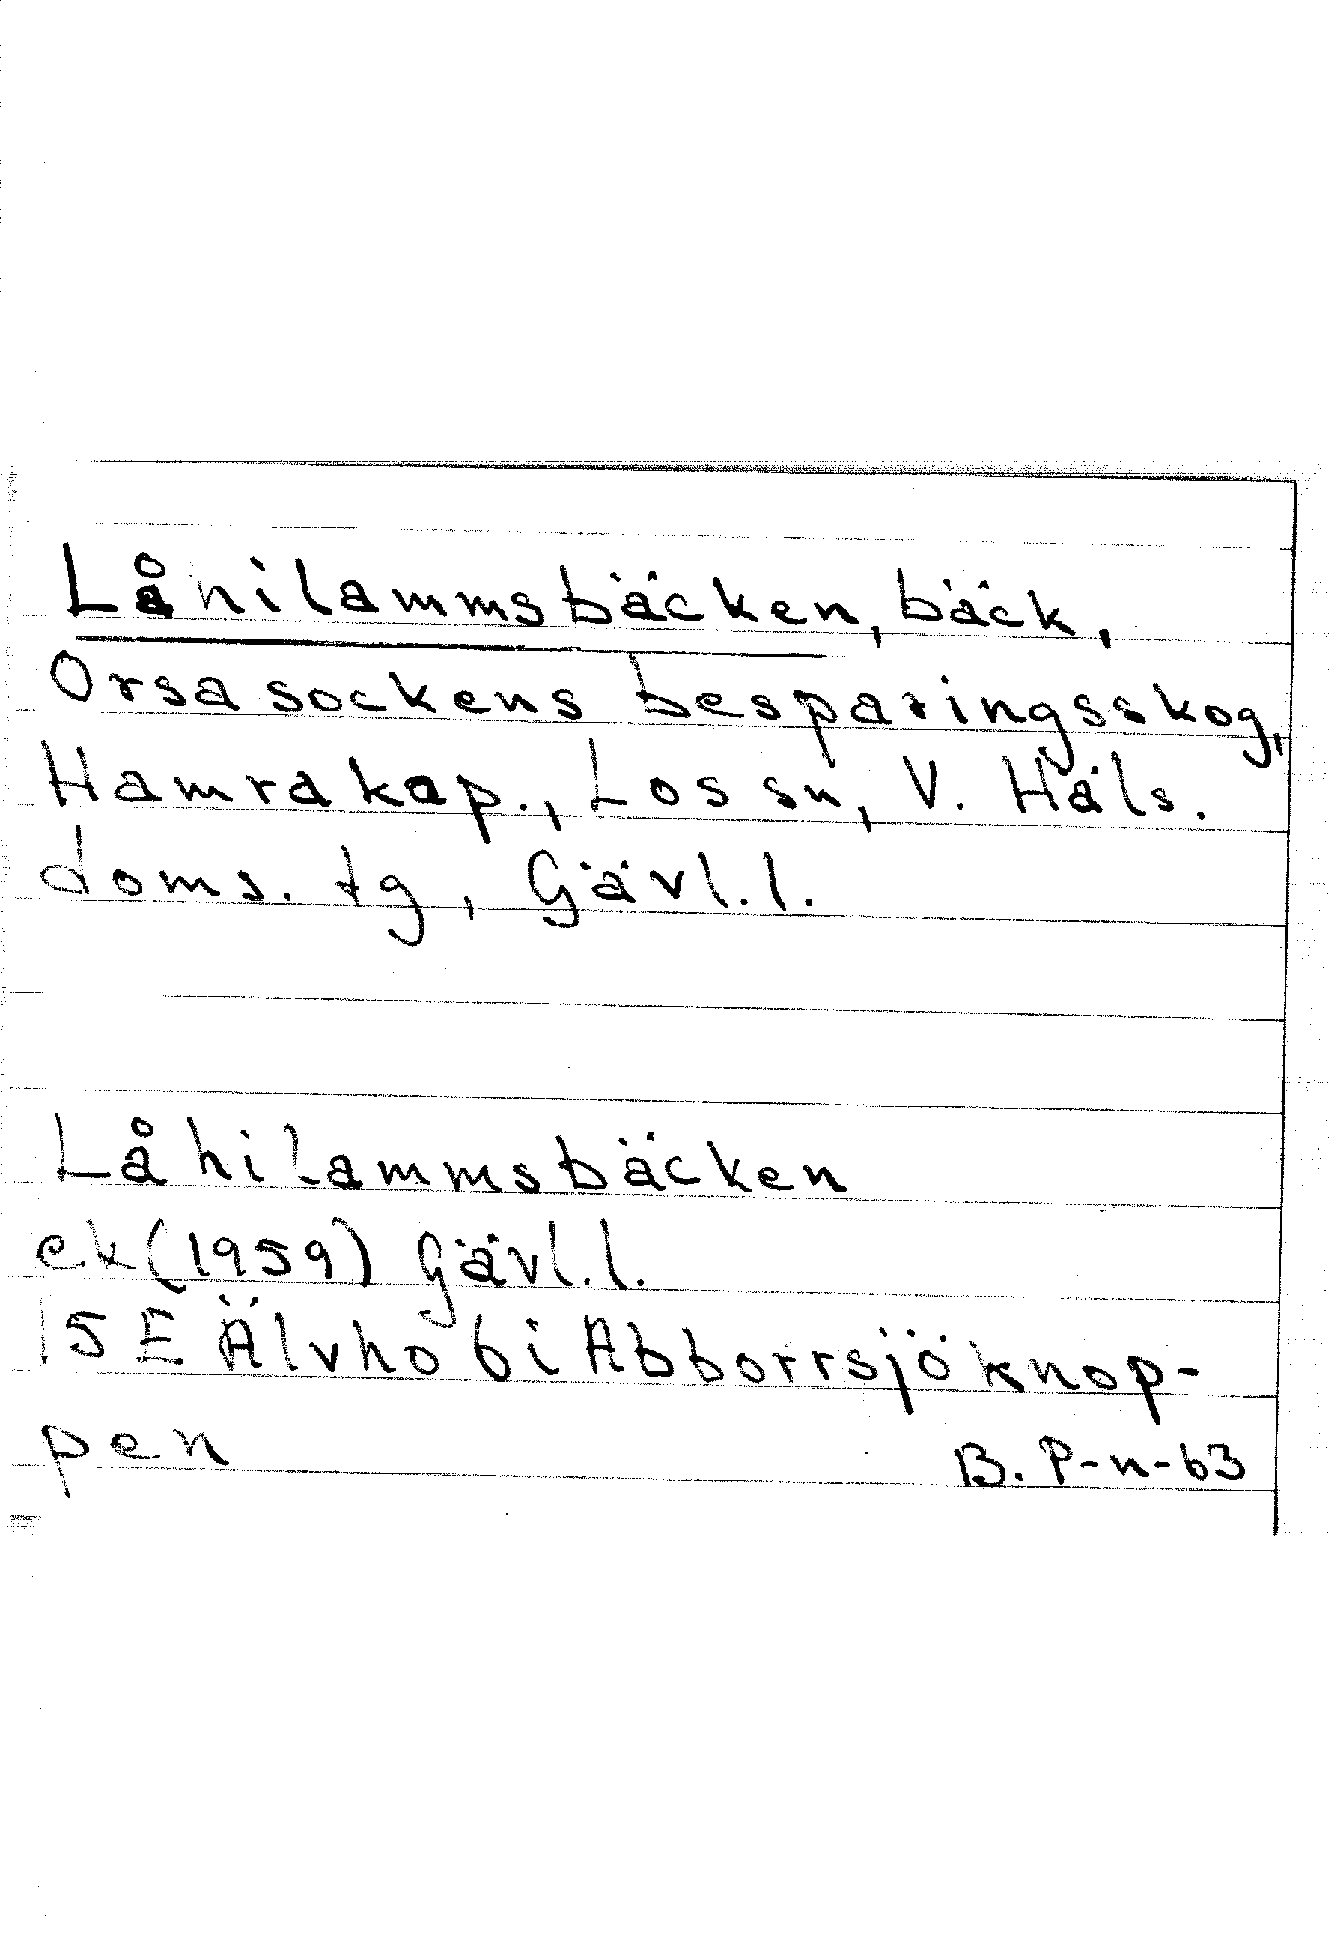 Låhilammsbäcken, bäck,
Orsa sockens besparingsskog,
Hamra kap., Los sn, V. Häls.
doms. tg, Gävl.l.
Låhilammsbäcken
ek (1959) Gävl.l.
15 E Älvho 6 i Abborrsjöknop-
pen
B. P-n-63